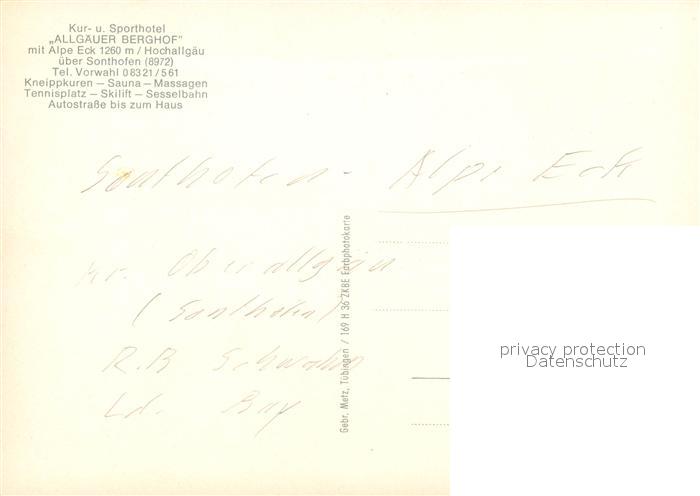 Kur- u. Sporthotel
„ALLGÄUER BERGHOF"
mit Alpe Eck 1260 m / Hochallgäu
über Sonthofen (8972)
Tel. Vorwahl 0 83 21 / 5 61
Kneippkuren – Sauna – Massagen
Tennisplatz – Skilift – Sesselbahn
Autostraße bis zum Haus
Sonthofen - Alpe Eck
Kr. Oberallgäu
(Sonthofen)
R.B Schwaben
Ld. Bay
Gebr. Metz, Tübingen / 169 H 36 ZKBE Farbphotokarte
privacy protection
Datenschutz